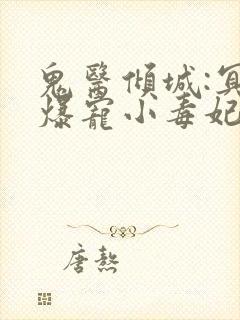 鬼醫傾城:冥
爆寵小毒妃
唐熬